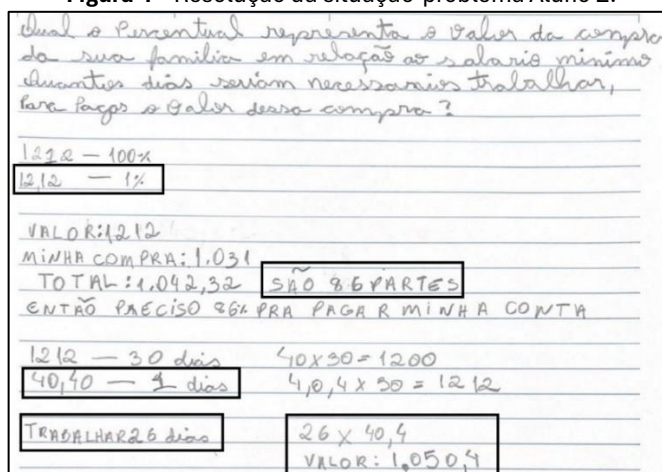 Figura 4 - Resolução da situação-problema Aluno 2.
Qual o Percentual representa o valor da compra
da sua familia em relação ao salario minimo
Quantos dias seriam necessarios trabalhar,
Para Pagar o valor dessa compra?
1212 — 100%
12,12 — 1%
VALOR:1212
MINHA COMPRA: 1.031
TOTAL: 1.042,32 SÃO 86 PARTES
ENTÃO PRECISO 86% PRA PAGAR MINHA CONTA
1212 — 30 dias 40x30=1200
40,40 — 1 dias 4,0,4 x 30 = 1212
TRABALHAR 26 dias 26 x 40,4
VALOR: 1,050,4